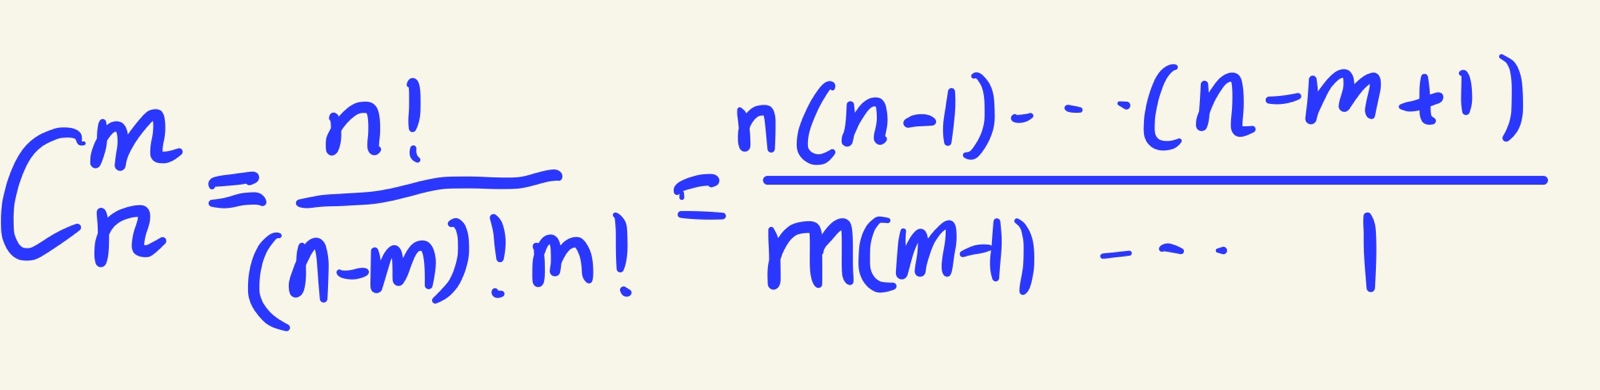 C_n^m = \frac{n!}{(n-m)!m!} = \frac{n(n-1)\cdots(n-m+1)}{m(m-1)\cdots 1}